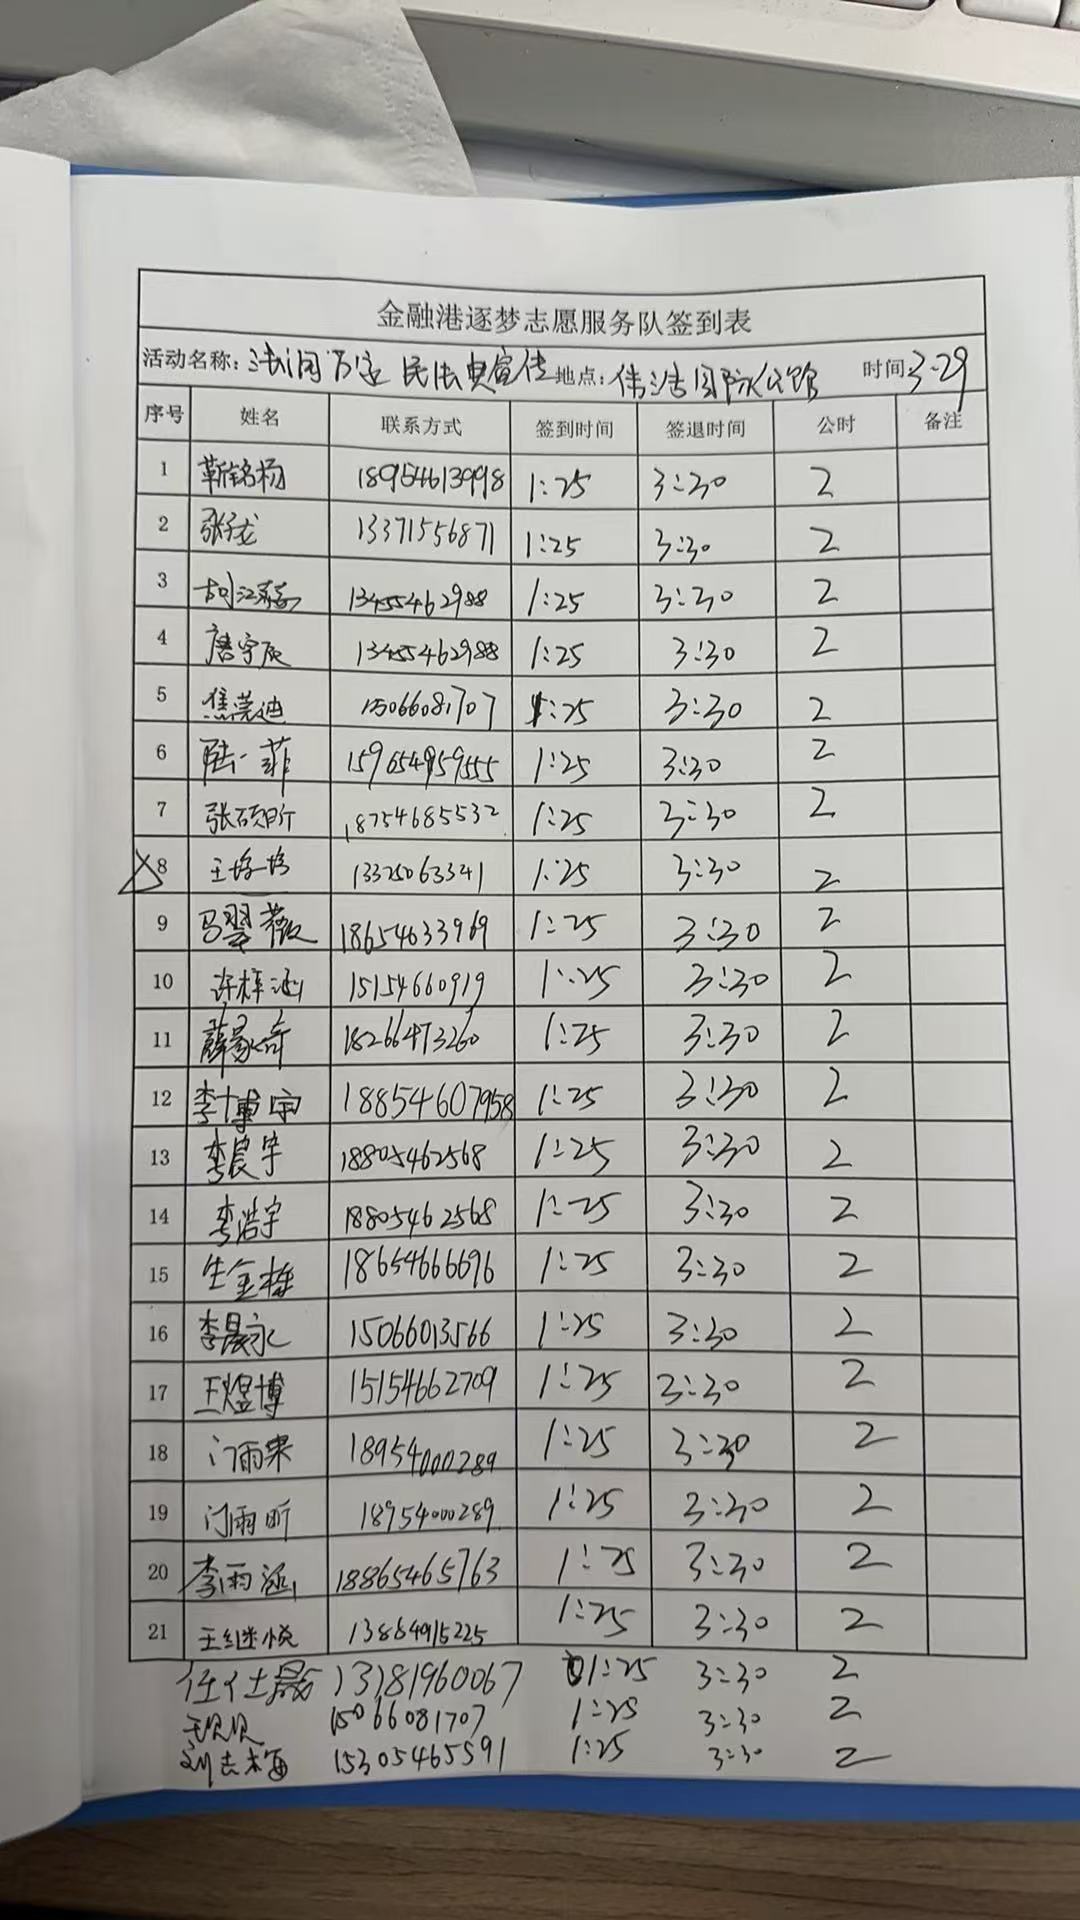 金融港逐梦志愿服务队签到表
活动名称: 法润万家 民法典宣传 地点: 伟浩国际公馆 时间 3-29
序号 姓名 联系方式 签到时间 签退时间 公时 备注
1 靳铭杨 18954613998 1:25 3:30 2
2 张龙 13371556871 1:25 3:30 2
3 胡江 13455462988 1:25 3:30 2
4 唐宇辰 13455462988 1:25 3:30 2
5 焦莞迪 15066081707 1:25 3:30 2
6 陆一菲 1:25 3:30 2
7 张硕昕 18754685532 1:25 3:30 2
8 王 13325063341 1:25 3:30 2
9 马翠薇 18654633969 1:25 3:30 2
10 许梓涵 15154660919 1:25 3:30 2
11 薛景奇 18266473260 1:25 3:30 2
12 李博宇 18854607958 1:25 3:30 2
13 李宸宇 18805462568 1:25 3:30 2
14 李浩宇 18805462568 1:25 3:30 2
15 生金栋 18654666696 1:25 3:30 2
16 李晨永 15066013566 1:25 3:30 2
17 王煜博 15154662709 1:25 3:30 2
18 门雨霏 18954000289 1:25 3:30 2
19 门雨昕 18954000289 1:25 3:30 2
20 李雨涵 18865465763 1:25 3:30 2
21 王继悦 13864915225 1:25 3:30 2
任仕晟 13181960067 1:25 3:30 2
王贝贝 15066081707 1:25 3:30 2
刘志梅 15305465591 1:25 3:30 2